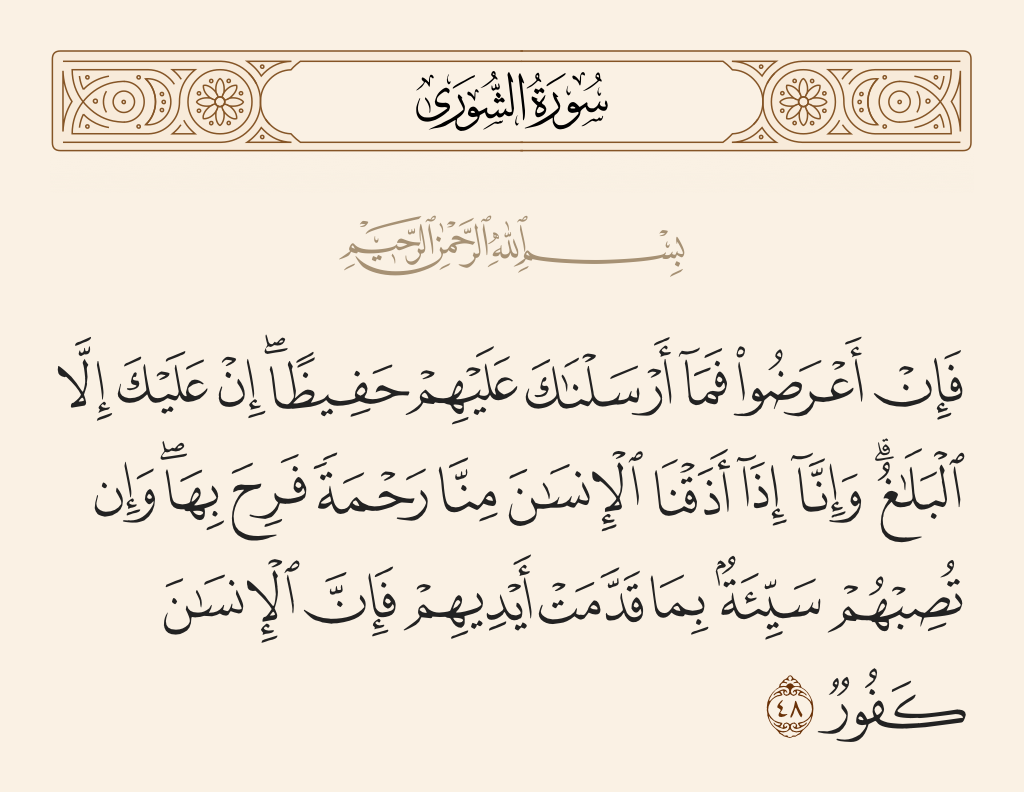 سُورَةُ الشُّورَىٰ
بِسْمِ ٱللَّهِ ٱلرَّحْمَٰنِ ٱلرَّحِيمِ
فَإِنْ أَعْرَضُوا۟ فَمَآ أَرْسَلْنَـٰكَ عَلَيْهِمْ حَفِيظًا ۖ إِنْ عَلَيْكَ إِلَّا
ٱلْبَلَـٰغُ ۗ وَإِنَّآ إِذَآ أَذَقْنَا ٱلْإِنسَـٰنَ مِنَّا رَحْمَةً فَرِحَ بِهَا ۖ وَإِن
تُصِبْهُمْ سَيِّئَةٌۢ بِمَا قَدَّمَتْ أَيْدِيهِمْ فَإِنَّ ٱلْإِنسَـٰنَ
كَفُورٌ ٤٨